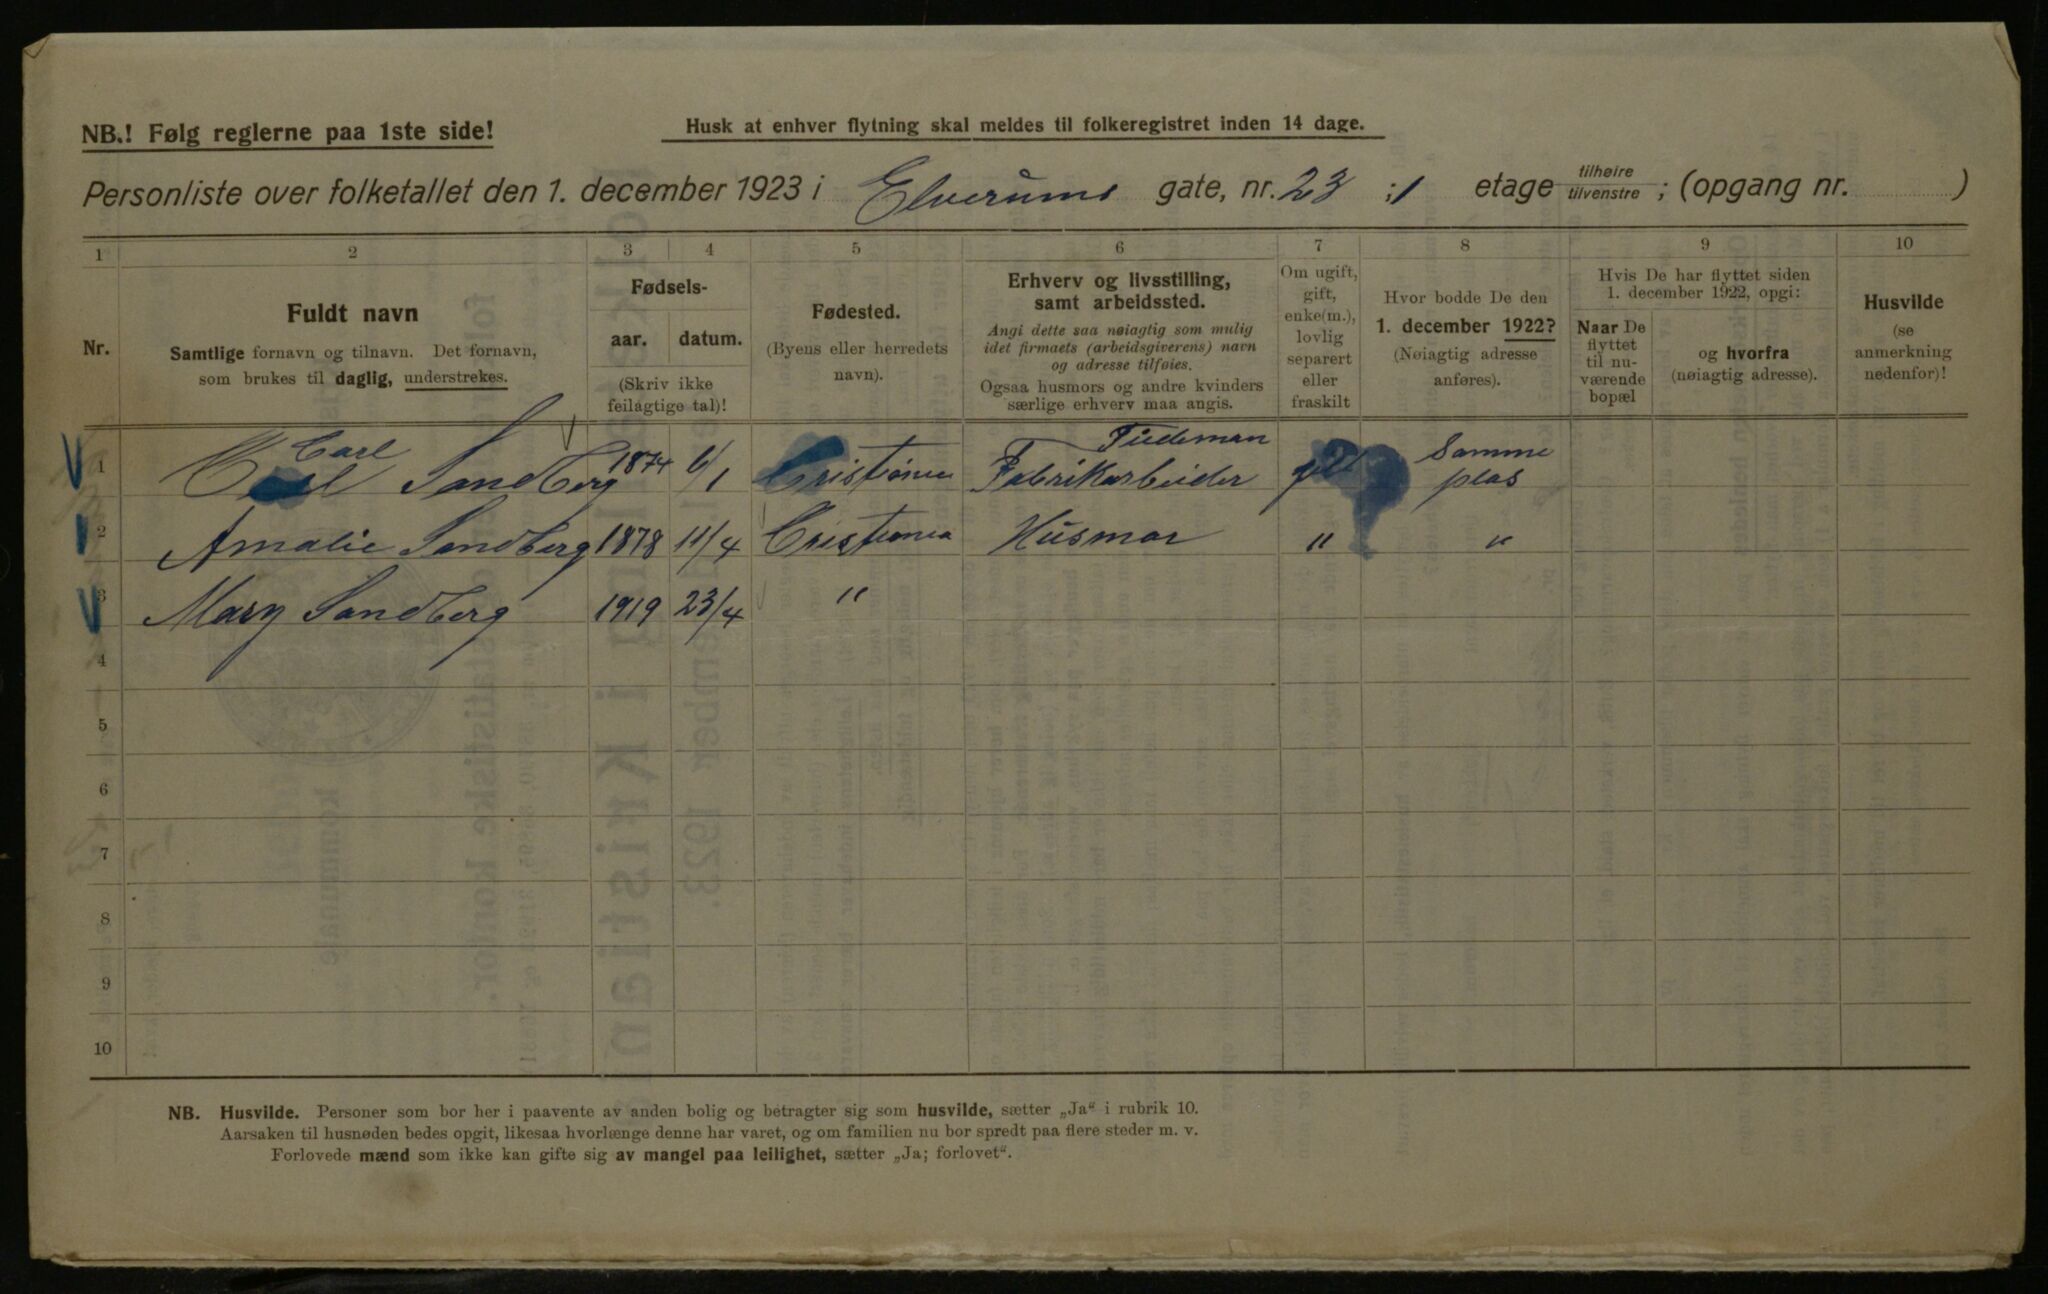 NB.! Følg reglerne paa 1ste side!
Husk at enhver flytning skal meldes til folkeregistret inden 14 dage.
Personliste over folketallet den 1. december 1923 i Elverums gate, nr. 23 ; 1 etage tilhøire tilvenstre ; (opgang nr. )
1 2 3 4 5 6 7 8 9 10
Nr.
Fuldt navn
Samtlige fornavn og tilnavn. Det fornavn,
som brukes til daglig, understrekes.
Fødsels-
aar. datum.
(Skriv ikke
feilagtige tal)!
Fødested.
(Byens eller herredets
navn).
Erhverv og livsstilling,
samt arbeidssted.
Angi dette saa nøiagtig som mulig
idet firmaets (arbeidsgiverens) navn
og adresse tilføies.
Ogsaa husmors og andre kvinders
særlige erhverv maa angis.
Om ugift,
gift,
enke(m.),
lovlig
separert
eller
fraskilt
Hvor bodde De den
1. december 1922?
(Nøiagtig adresse
anføres).
Hvis De har flyttet siden
1. december 1922, opgi:
Naar De
flyttet
til nu-
værende
bopæl
og hvorfra
(nøiagtig adresse).
Husvilde
(se
anmerkning
nedenfor)!
Carl Tiedeman
1 Carl Sandberg 1874 6/1 Cristiania Fabrikarbeider gift Samme plas
2 Amalie Sandberg 1878 11/4 Cristiania Husmor " "
3 Mary Sandberg 1919 23/4 "
4
5
6
7
8
9
10
NB. Husvilde. Personer som bor her i paavente av anden bolig og betragter sig som husvilde, sætter „Ja“ i rubrik 10.
Aarsaken til husnøden bedes opgit, likesaa hvorlænge denne har varet, og om familien nu bor spredt paa flere steder m. v.
Forlovede mænd som ikke kan gifte sig av mangel paa leilighet, sætter „Ja; forlovet“.